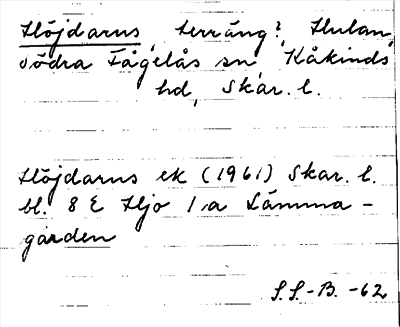 Höjdarns, terräng?, Hulan,
Södra Fågelås sn, Kåkinds
hd, Skar. l.
Höjdarns ek (1961) Skar. l.
bl. 8 E Hjo 1:a Lämma-
gården
S.S.-B. -62